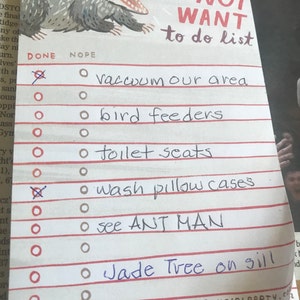 NOT
WANT
to do list
DONE NOPE
vaccuum our area
bird feeders
toilet seats
wash pillowcases
see ANT MAN
Jade Tree on sill